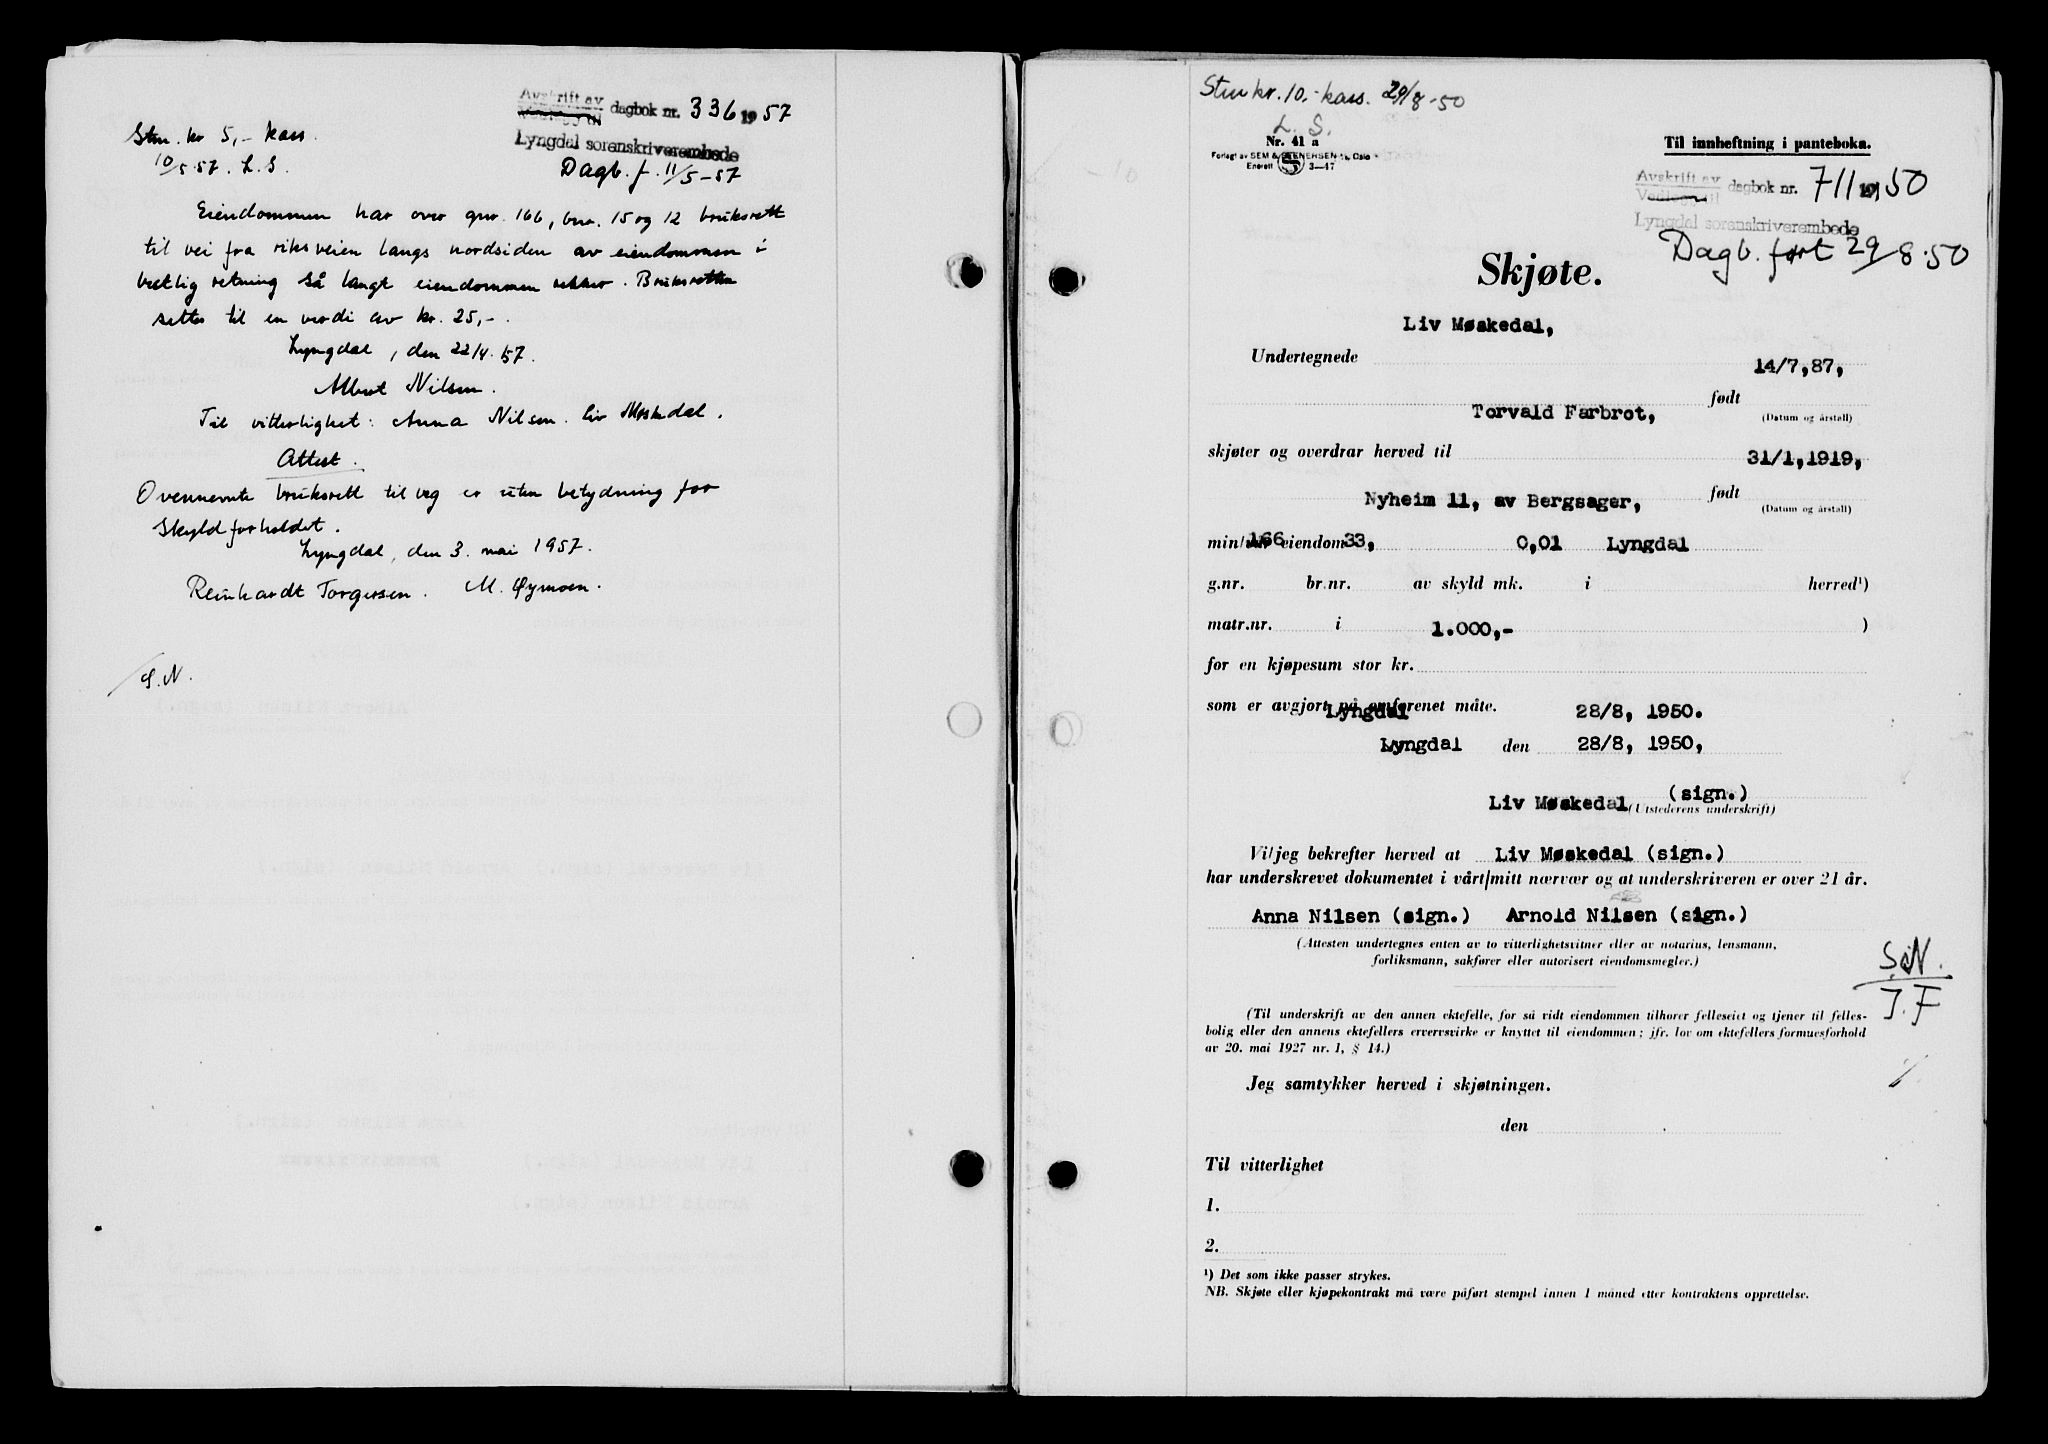 Avskrift av
Vedlegg til dagbok nr. 336 1957
Lyngdal sorenskriverembede
Stm. kr 5,- kass.
10/5.57. L.S.
Dagb.f. 11/5-57
Eiendommen har over gnr. 166, bnr. 15 og 12 bruksrett
til vei fra riksveien langs nordsiden av eiendommen i
vestlig retning så langt eiendommen rekker. Bruksretten
settes til en verdi av kr. 25,-.
Lyngdal, den 22/4.57.
Albert Nilsen.
Til vitterlighet: Anna Nilsen. Liv Møskedal.
Attest.
Ovennevnte bruksrett til veg er uten betydning for
skyldforholdet.
Lyngdal, den 3. mai 1957.
Reinhardt Torgersen. M. Øymoen.
S.N.
Stm kr. 10,- kass. 29/8-50
L. S.
Nr. 41 a
Forlagt av SEM & STENERSEN A/s, Oslo
Enerett S 3—47
Til innheftning i panteboka.
Avskrift av
Vedlegg til dagbok nr. 711 1950
Lyngdal sorenskriverembede
Dagb. ført 29/8.50
Skjøte.
Liv Møskedal,
Undertegnede
14/7,87,
født
Torvald Farbrot,
(Datum og årstall)
skjøter og overdrar herved til
31/1,1919,
født
Nyheim 11, av Bergsager,
(Datum og årstall)
min/vår eiendom 166 33, 0,01 Lyngdal
g.nr. br.nr. av skyld mk. i herred¹)
matr.nr. i 1.000,- )
for en kjøpesum stor kr.
som er avgjort på omforenet måte.
Lyngdal 28/8, 1950.
Lyngdal den 28/8, 1950,
Liv Møskedal (sign.)
(Utstederens underskrift)
Vi/jeg bekrefter herved at Liv Møskedal (sign.)
har underskrevet dokumentet i vårt/mitt nærvær og at underskriveren er over 21 år.
Anna Nilsen (sign.) Arnold Nilsen (sign.)
(Attesten undertegnes enten av to vitterlighetsvitner eller av notarius, lensmann,
forliksmann, sakfører eller autorisert eiendomsmegler.)
S.N.
J.F
(Til underskrift av den annen ektefelle, for så vidt eiendommen tilhører felleseiet og tjener til felles-
bolig eller den annens ektefellers ervervsvirke er knyttet til eiendommen; jfr. lov om ektefellers formuesforhold
av 20. mai 1927 nr. 1, § 14.)
Jeg samtykker herved i skjøtningen.
den
Til vitterlighet
1.
2.
¹) Det som ikke passer strykes.
NB. Skjøte eller kjøpekontrakt må være påført stempel innen 1 måned etter kontraktens opprettelse.